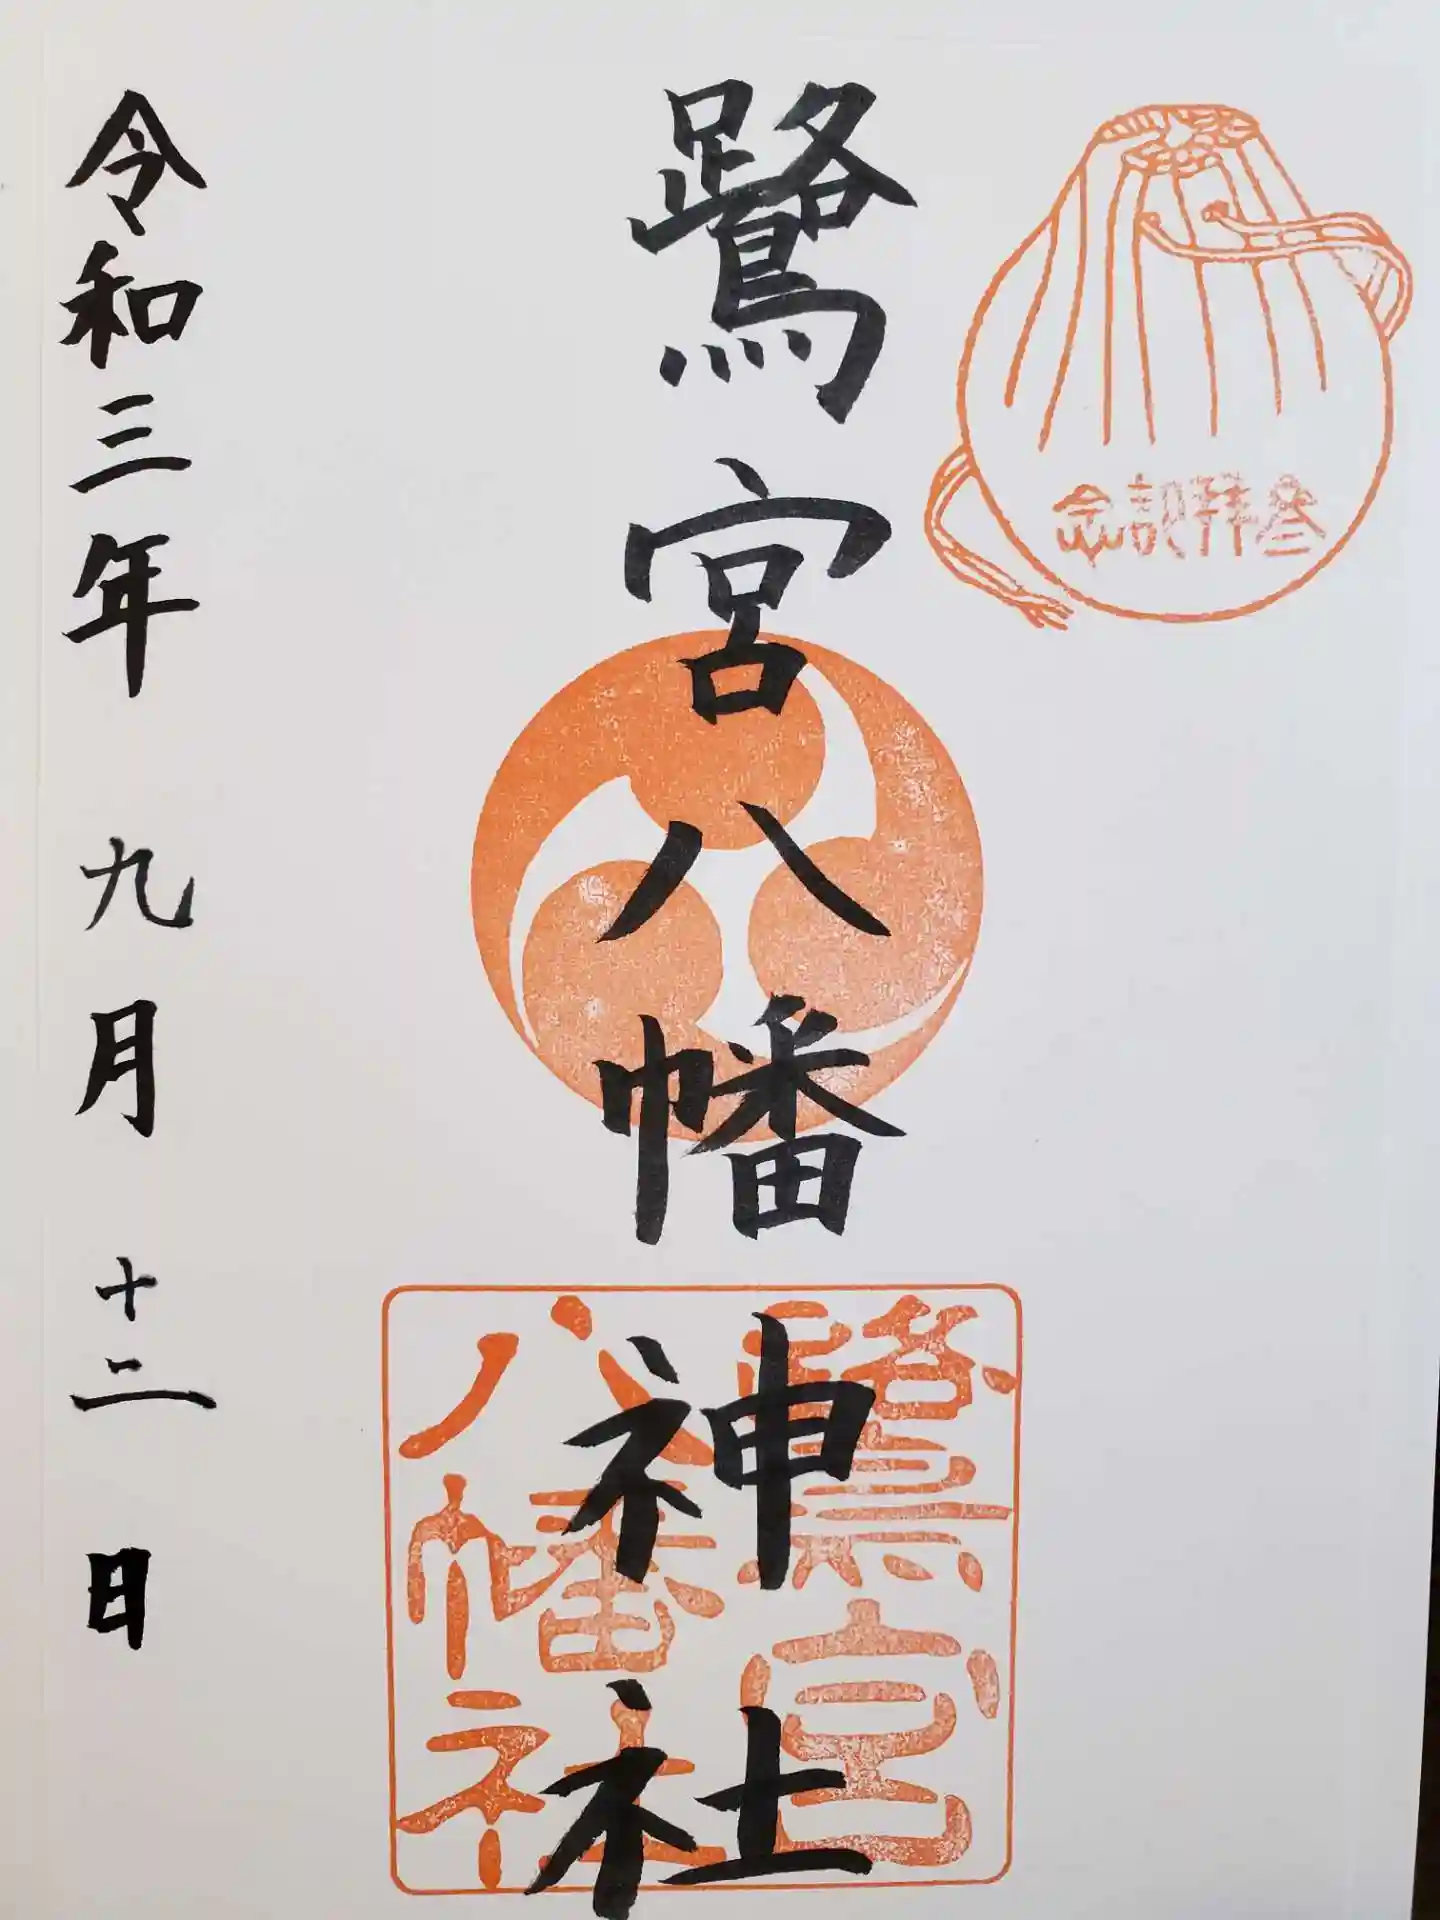 參拜記念
鷺宮八幡神社
鷺宮
八幡社
令和三年 九月 十二日